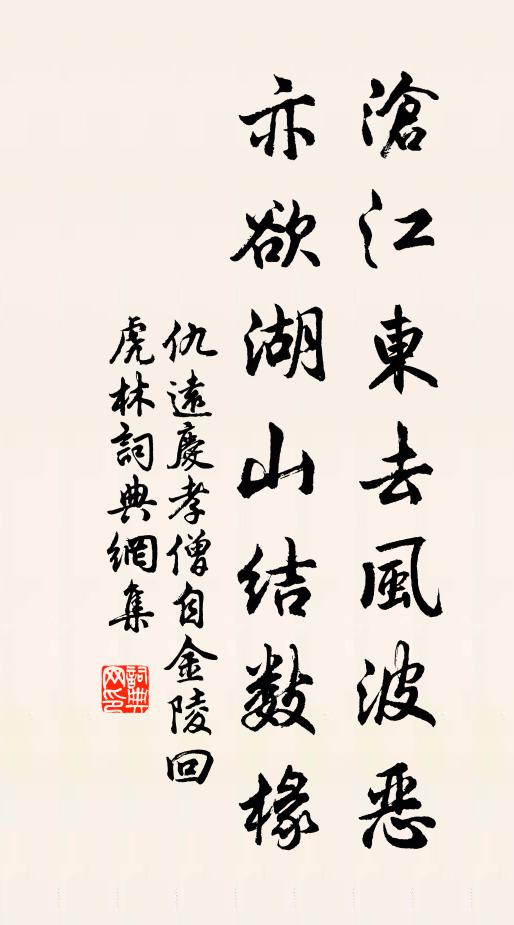 滄江東去風波惡
亦欲湖山結数椽
仇遠慶孝僧自金陵回
虎林詞典網集
詞典
网印